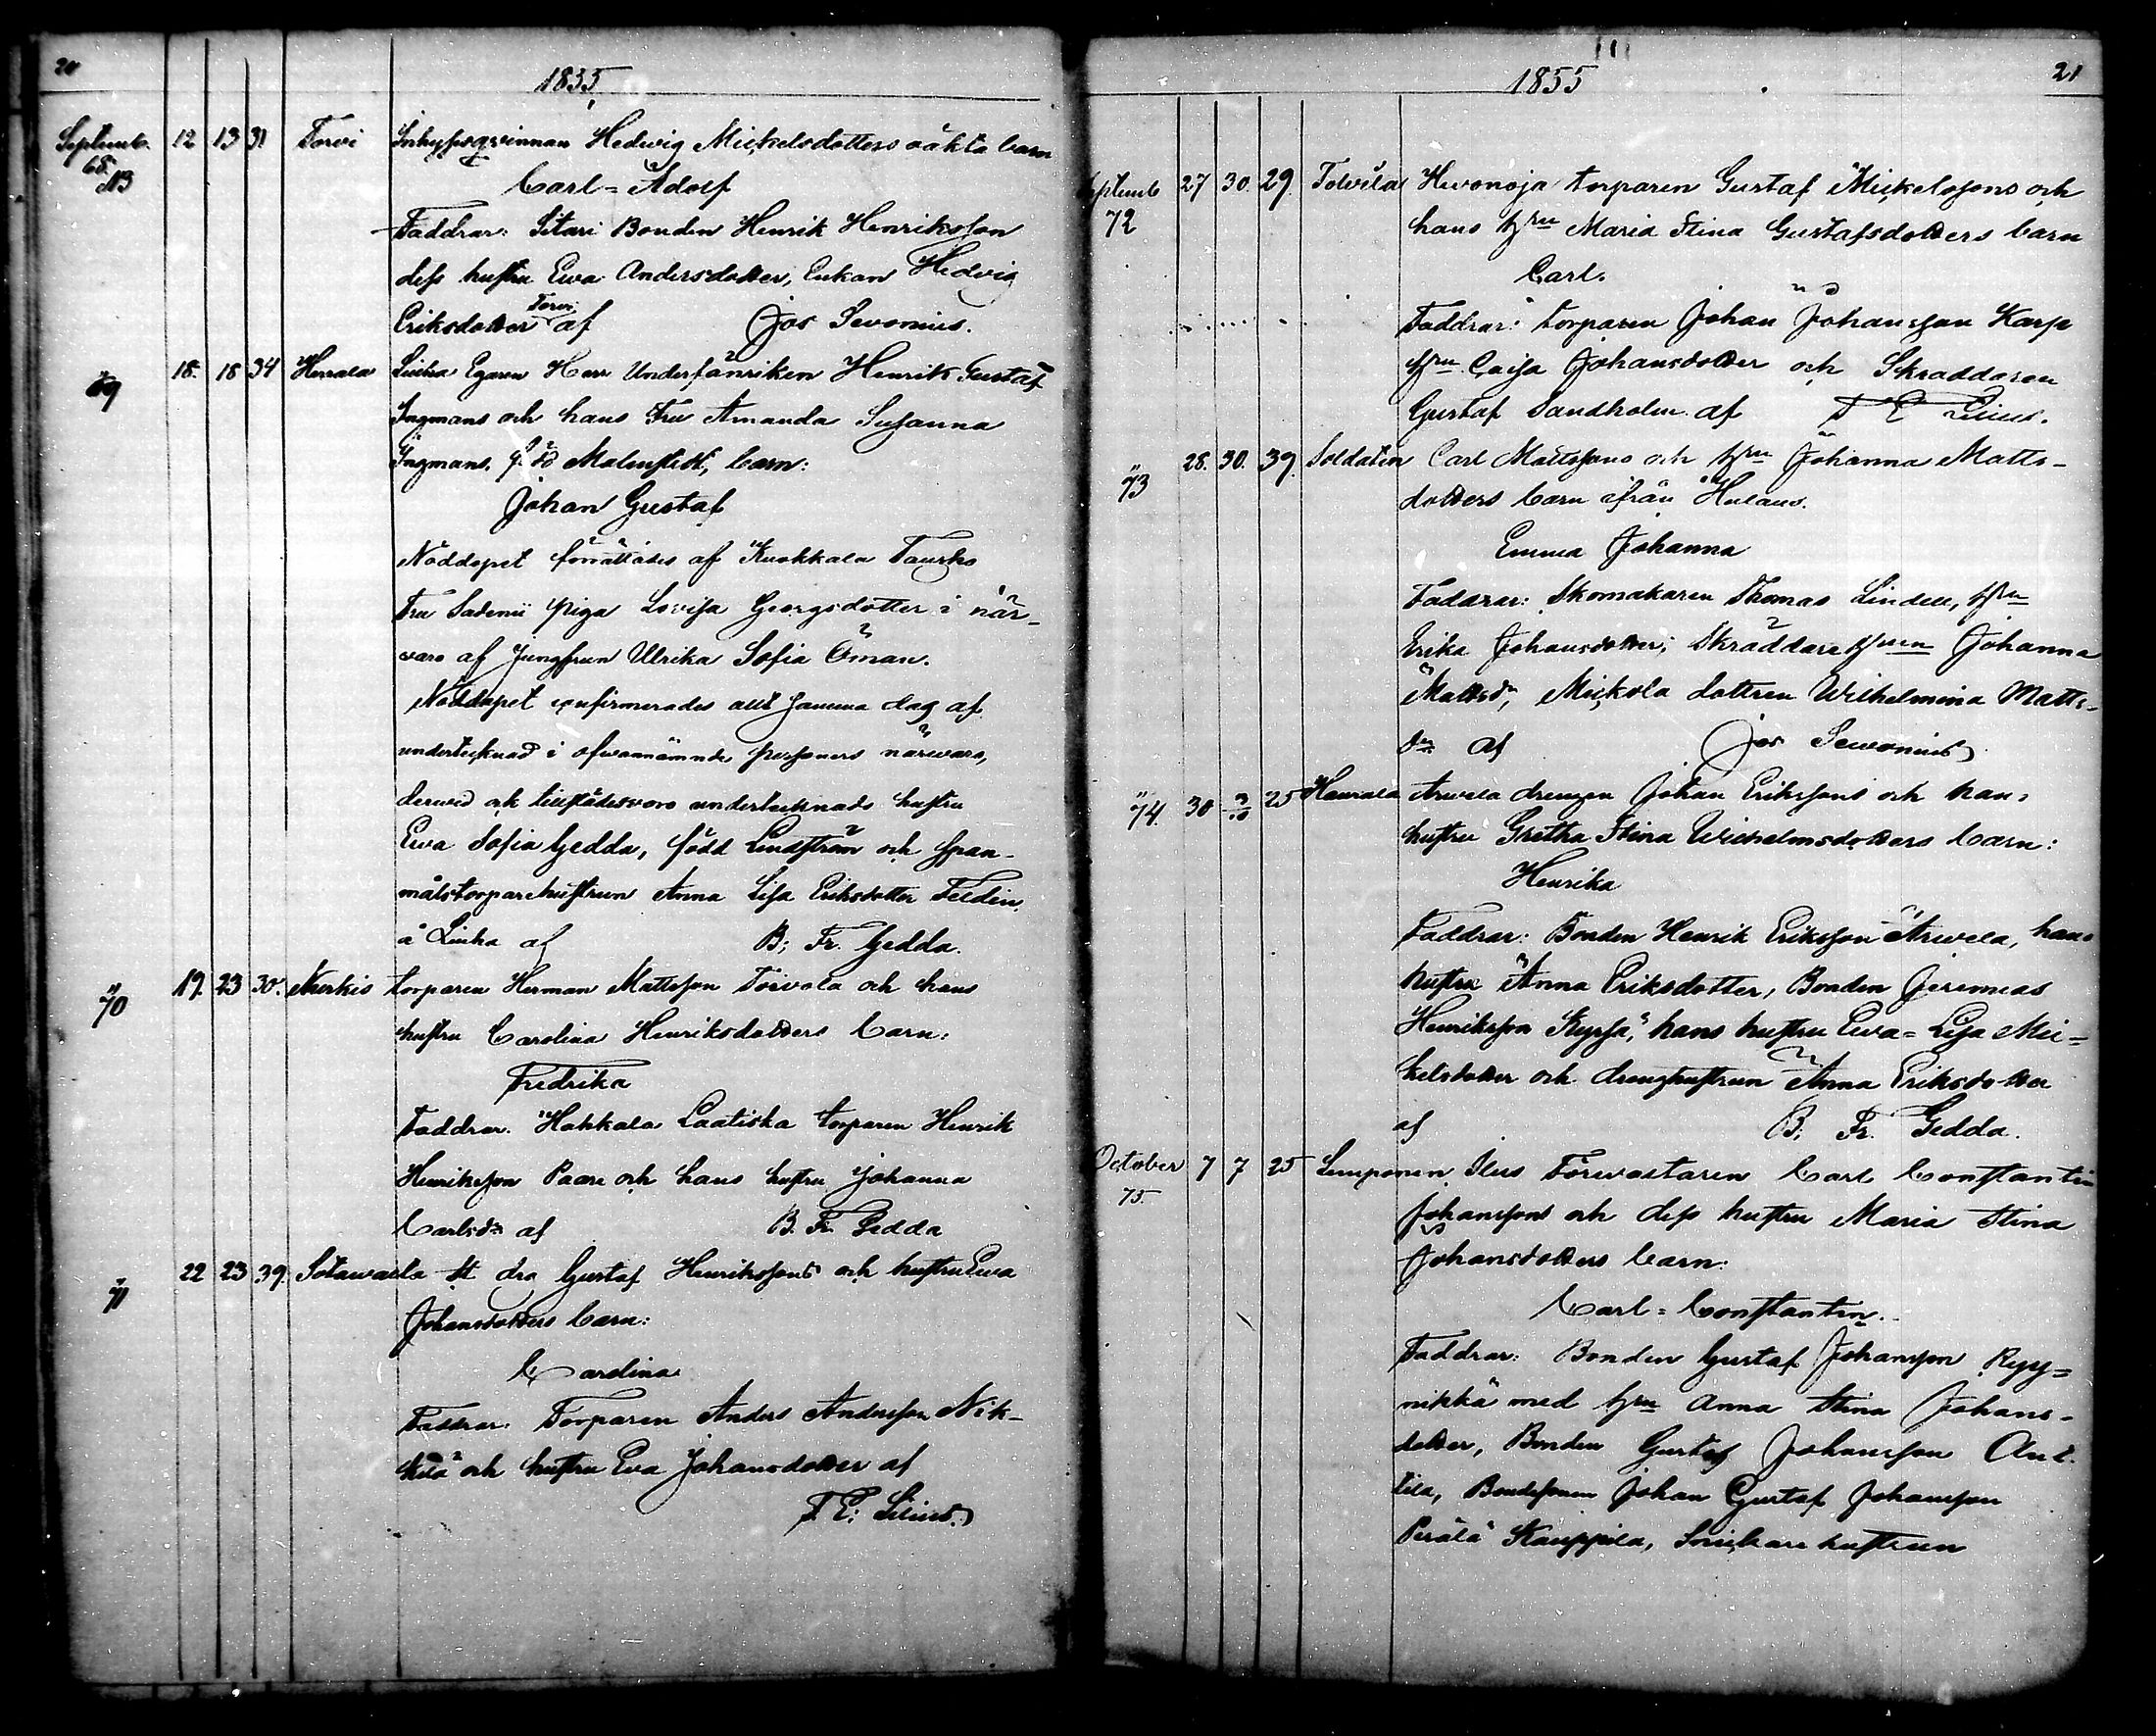 20
1855
Septemb. 12 13 31 Torvi Inhysesqvinnan Hedwig Mickelsdotters oäkta barn
68.
Carl-Adolf
Faddrar: Sitari Bonden Henrik Henriksson
dess hustru Ewa Andersdotter, Enkan Hedvig
Eriksdotter Torvi af Jos Sevonius.
" 69 18. 18 34 Herrala Egaren Herr Underfänriken Henrik Gustaf
Ingmans och hans Fru Amanda Susanna
Ingmans, född Malmstedt, barn:
Johan Gustaf
Nöddopet förrättades af Kuokkala
Fru piga Lovisa Georgsdotter i när-
varo af Jungfrun Ulrika Sofia Öman.
Nöddopet confirmerades allt samma dag af
undertecknad i ofvannämnde personers närwaro,
derwid och tillstädeswaro undertecknads hustru
Ewa Sofia Gedda, född Lindström och span-
målstorparehustrun Anna Lisa Eriksdotter
å af B. Fr. Gedda.
" 70 19. 23 30. Nurkis torparen Herman Mattsson Torvola och hans
hustru Carolina Henriksdotters barn:
Fredrika
Faddrar. Hakkala Laatiska torparen Henrik
Henriksson Paare och hans hustru Johanna
Carlsdr af B. Fr. Gedda
" 71 22 23 39. Sotawalta dr Gustaf Henrikssons och hustru Ewa
Johansdotters barn:
Carolina
Faddrar: Torparen Anders Andersson Nik-
kilä och hustru Eva Johansdotter af
F. E. Lilius.
21
1855
Septemb 27 30. 29. Tolvila Hwonoja torparen Gustaf Mickelssons och
72 hans hru Maria Stina Gustafsdotters barn
Carl.
Faddrar: torparen Johan Johansson Karp
hru Caisa Johansdotter och Skraddaren
Gustaf Sandholm af F E Lilius.
" 73 28. 30. 39. Soldaten Carl Mattssons och hru Johanna Matts-
dotters barn ifrån
Emma Johanna
Faddrar: Skomakaren Thomas Lindell, hru
Erika Johansdotter, Skräddarehrun Johanna
Mattsdr, Mickola dottren Wilhelmina Matts-
dr af Jos Sewonius
" 74. 30 3/10 25 Haurala Arwela drengen Johan Erikssons och hans
hustru Gretha Stina Wilhelmsdotters barn:
Henrika
Faddrar: Bonden Henrik Eriksson Arwela, hans
hustru Anna Eriksdotter, Bonden Jeremias
Henriksson hans hustru Ewa-Lisa Mic-
kelsdotter och drenghustrun Anna Eriksdotter
af B. Fr. Gedda.
October 7 7 25 Semponen Ilus Förwaltaren Carl Constantin
75. Johanssons och dess hustru Maria Stina
Johansdotters barn:
Carl-Constantin.
Faddrar: Bonden Gustaf Johansson Ryy-
nikkä med hru Anna Stina Johans-
dotter, Bonden Gustaf Johansson Ant-
tila, Bondesonen Johan Gustaf Johansson
Perälä Kauppila, Snickare hustrun